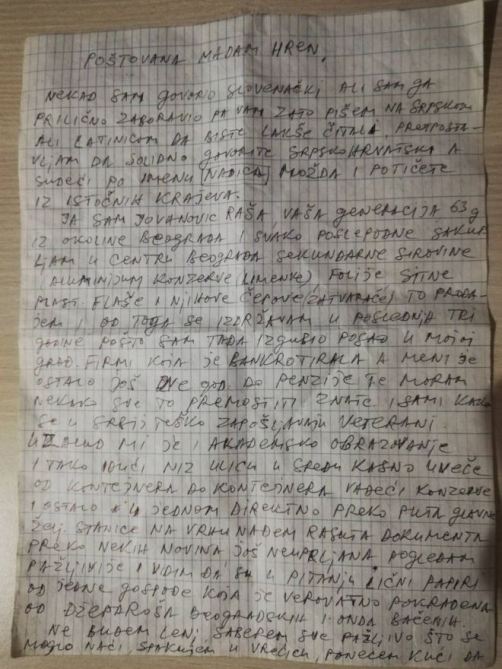 POŠTOVANA MADAM HREN,
NEKAD SAM GOVORIO SLOVENAČKI ALI SAM GA
PRILIČNO ZABORAVIO PA VAM ZATO PIŠEM NA SRPSKOM
ALI LATINICOM DA BISTE LAKŠE ČITALA. PRETPOSTA-
VLJAM DA SOLIDNO GOVORITE SRPSKOHRVATSKI A
SUDEĆI PO IMENU NADICA MOŽDA I POTIČETE
IZ ISTOČNIH KRAJEVA.
JA SAM JOVANOVIC RAŠA, VAŠA GENERACIJA 63 g
IZ OKOLINE BEOGRADA I SVAKO POSLEPODNE SAKUP
LJAM U CENTRU BEOGRADA SEKUNDARNE SIROVINE
ALUMINIJUM KONZERVE (LIMENKE), FOLIJE SITNE
PLAST. FLAŠE I NJIHOVE ČEPOVE (ZATVARAČE) TO PRODA-
JEM I OD TOGA SE IZDRŽAVAM U POSLEDNJA TRI
GODINE POŠTO SAM TADA IZGUBIO POSAO U MOJOJ
GRAĐ. FIRMI KOJA JE BANKROTIRALA A MENI JE
OSTALO JOŠ DVE GOD. DO PENZIJE TE MORAM
NEKAKO SVE TO PREMOSTITI ZNATE I SAMI KAKO
SE U SRBIJI TEŠKO ZAPOŠLJAVAJU VETERANI.
MI JE I AKADEMSKO OBRAZOVANJE
I TAKO IDUĆI NIZ ULICU U SREDU KASNO UVEČE
OD KONTEJNERA DO KONTEJNERA VADEĆI KONZERVE
I OSTALO U JEDNOM DIREKTNO PREKO PUTA GLAVNE
ŽELJ. STANICE NA VRHU NAĐEM RASUTA DOKUMENTA
PREKO NEKIH NOVINA JOŠ NEUPRLJANA POGLEDAM
PAŽLJIVIJE I VIDIM DA SU U PITANJU LIČNI PAPIRI
OD JEDNE GOSPOĐE KOJA JE VEROVATNO POKRADENA
OD DŽEPAROŠA BEOGRADSKIH I ONDA BAČENIH.
NE BUDEM LENJ, SABEREM SVE PAŽLJIVO ŠTO SE
MOGLO NAĆI, SPAKUJEM U VREĆICU, PONESEM KUĆI DA